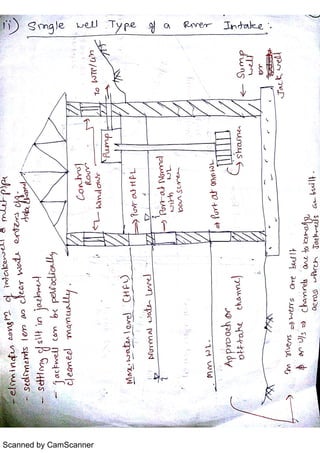 ii) Single well Type of a River Intake:-
- eliminates constn of intakewell & inlet pipe
sediments less as clear water enters off.
take channel
- settling of silt in jackwell
- jackwell can be periodically
cleaned manually.
Control
Room
Window
To WTP/Link
Pump
Sump
well
or
Jack well
Strainer
Port at HFL
Port at Normal
WL
with
bar screen
Port at Min WL
Max. water level (HFL)
Normal water level
Min WL.
Approach or
offtake channel
In rivers weirs are built
on U/s channels are
across which Jackwells are built.
Scanned by CamScanner